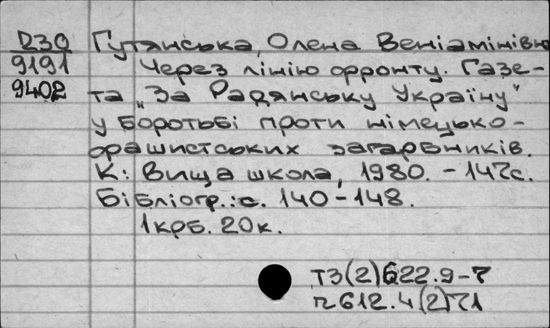 D30 Гутянська, Олена Веніамінівна
9191 Через лінію фронту. Газе-
9402 та „За Радянську Україну"
у боротьбі проти німецько-
фашистських загарбників.
К: Вища школа, 1980. - 147с.
Бібліогр.: с. 140-148.
1крб. 20к.
Т3(2)622.9-7
г612.4(2)71